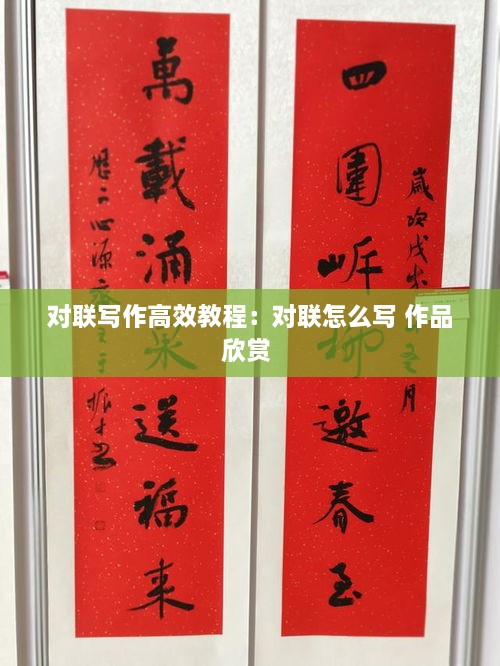 对联写作高效教程：对联怎么写 作品
欣赏
歲次戊戌冬月
四圍柳邀春至
萬載涌送福來
歷下心源